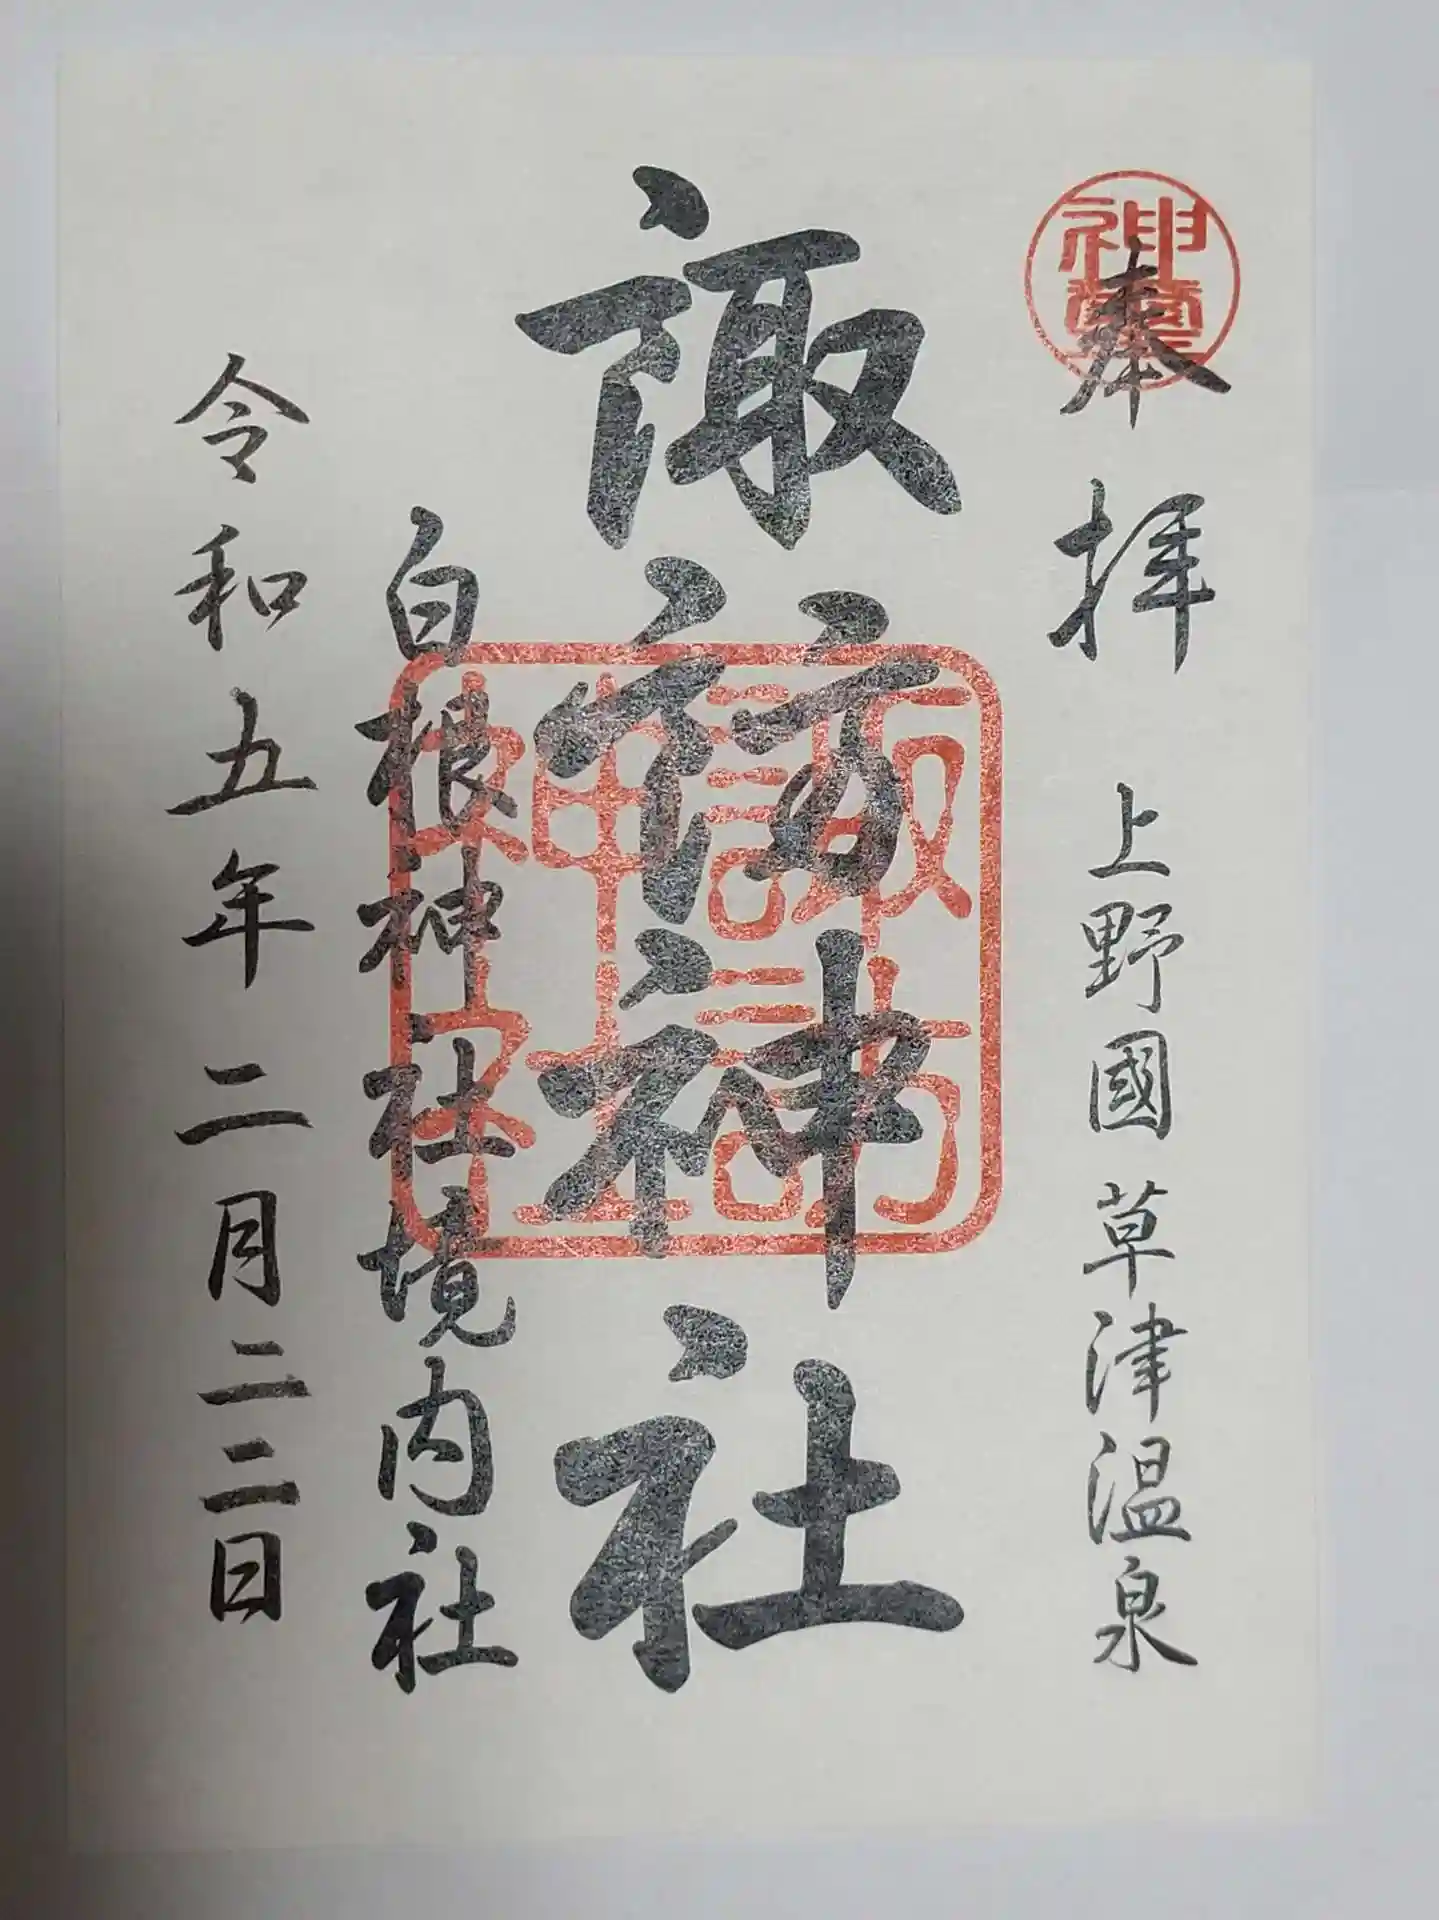 神璽
奉拝 上野國草津温泉
諏訪神社
諏訪神社
白根神社境内社
令和五年二月二二日